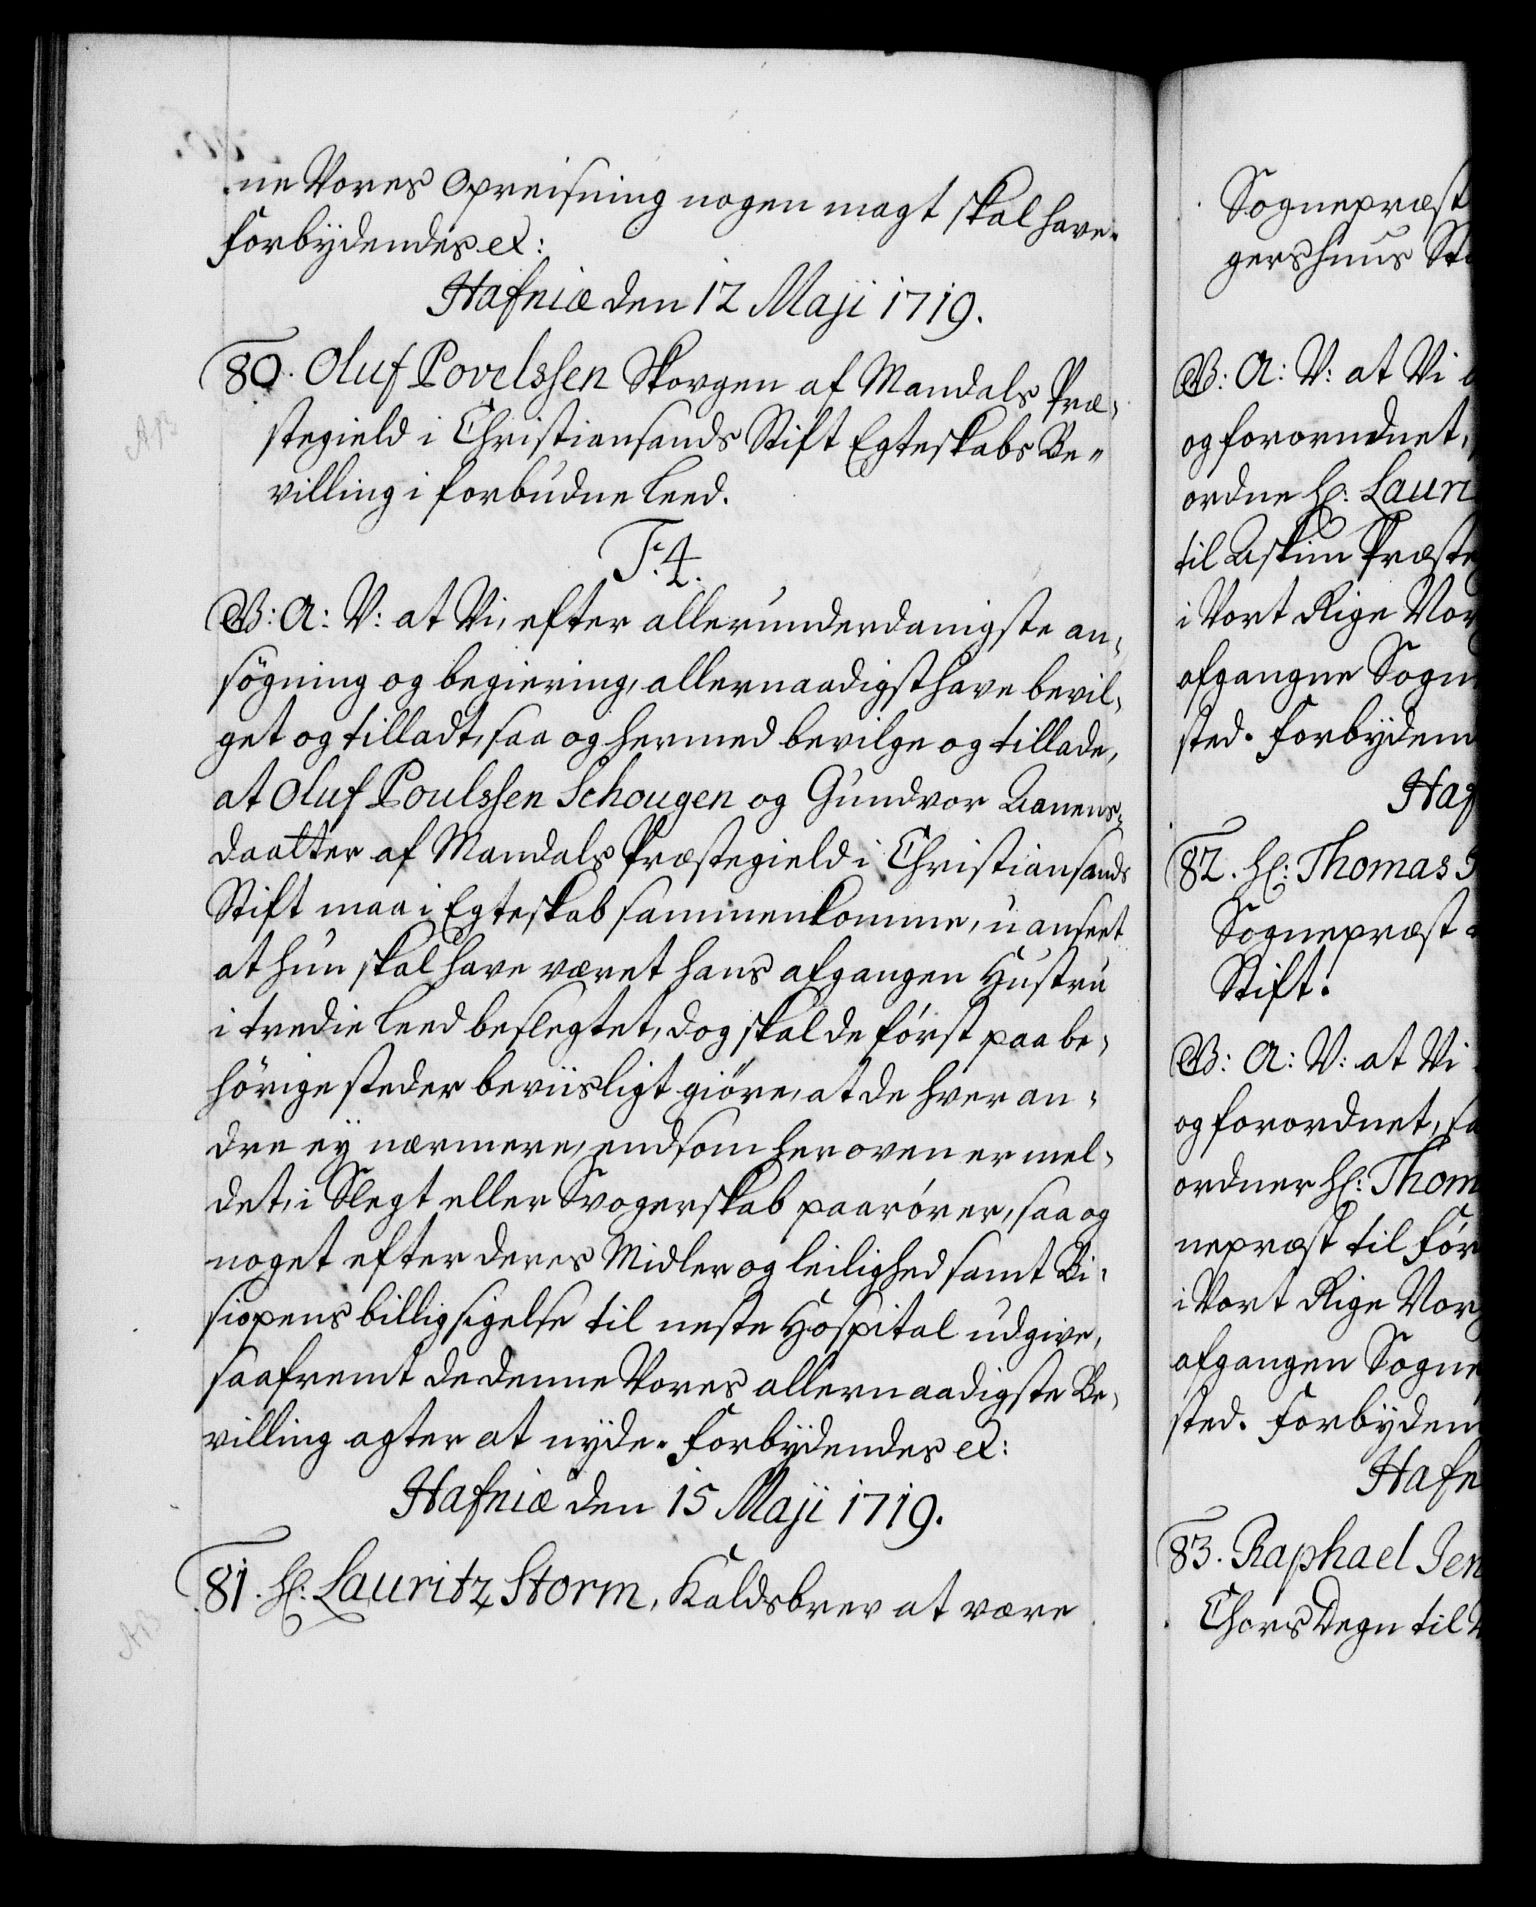 ne Vores Opreisning nogen magt skal have.
Forbydendes etc:
Hafniæ den 12 Maji 1719.
80. Oluf Povelssen Skovgen af Mandals Præ-
stegield i Christiansands Stift Egteskabs Be-
villing i forbudne leed.
F. 4.
G: A: V: at Vi, efter allerunderdanigste an-
søgning og begiering, allernaadigst have bevil-
get og tilladt, saa og hermed bevilge og tillade,
at Oluf Poulssen Schougen og Gundvor Aanens-
daatter af Mandals Præstegield i Christiansands
Stift maa i Egteskab sammenkomme, uanseet
at hun skal have været hans afgangen Hustru
i tredie leed beslegtet, dog skal de først paa be-
hørige steder beviisligt giøre, at de hver an-
dre ey nærmere, end som her oven er mel-
det, i Slegt eller Svogerskab paarører, saa og
noget efter deres Midler og leilighed samt Bi-
siopens billig sigelse til neste Hospital udgive,
saafremt de denne Vores allernaadigste Be-
villing agter at nyde. Forbydendes etc:
Hafniæ den 15 Maji 1719.
81. Hr: Lauritz Storm, Kaldsbrev at være
AB
AB
Sognepræst
gershuus St
G: A: V: at Vi
og forordnet,
ordne Hr: Lauri
til Askim Præste
i Vort Rige Nor
afgangne Sogn
sted. Forbyden
Haf
82. Hr: Thomas
Sognepræst
Stift.
G: A: V: at Vi
og forordnet, sa
ordner Hr: Thom
nepræst til Før
i Vort Rige Nor
afgangen Sogne
sted. Forbyden
Hafn
83. Raphael Jen
Chors Degn til